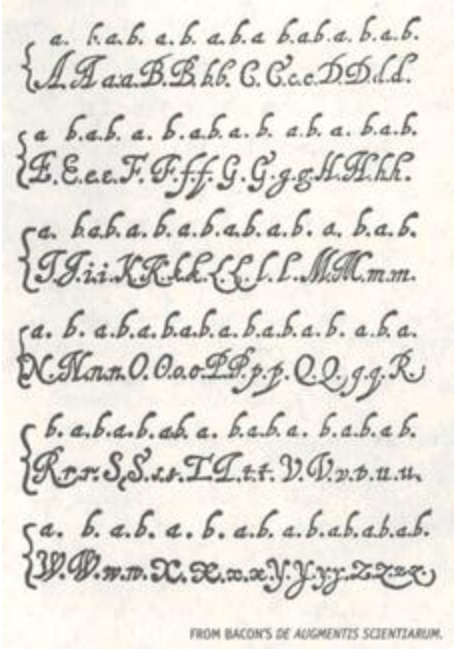 a. b.a.b. a.b. a.b.a b.a.b.a. b.a.b.
A A a.a.B.B.b.b. C.C.c.c.D.D.d.d.
a b.a.b. a. b.a.b.a.b a.b. a.b.a. b.a.b.
E.E.e.e.F.F.f.f. G.G.g.g.H.H.h.h.
a. b.a.b.a.b.a.b.a.b.a.b.a.b. a. b.a.b.
I.I.i.i.K.K.k.k.L.L.l.l.M.M.m.m.
a. b. a.b.a.b.a.b.a.b.a.b.a.b. a.b.a.
N.N.n.n.O.O.o.o.P.P.p.p.Q.Q.q.q.R.
b. a.b.a.b.a.b. a. b.a.b.a. b.a.b.a b.
R.r.r.S.S.s.s.T.T.t.t. V.V.v.v.u.u.
a. b. a.b. a. b. a.b. a.b.a.b.a.b.a.b.
W.W.w.w.X.X.x.x.Y.Y.y.y.Z.Z.z.z.
FROM BACON'S DE AUGMENTIS SCIENTIARUM.